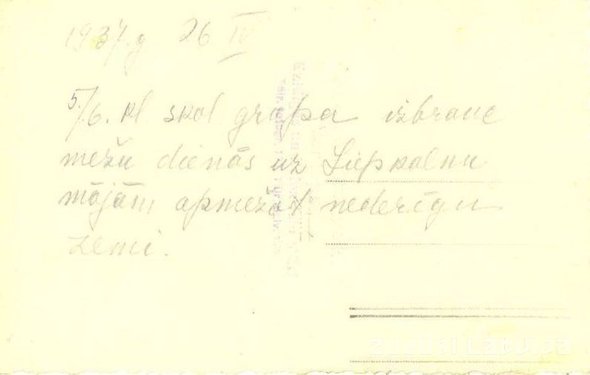 1937.g 26 IV
5./6. kl skol grupa izbrauc
mežu dienās uz Liepkalnu
mājām apmežot nederīgu
zemi.